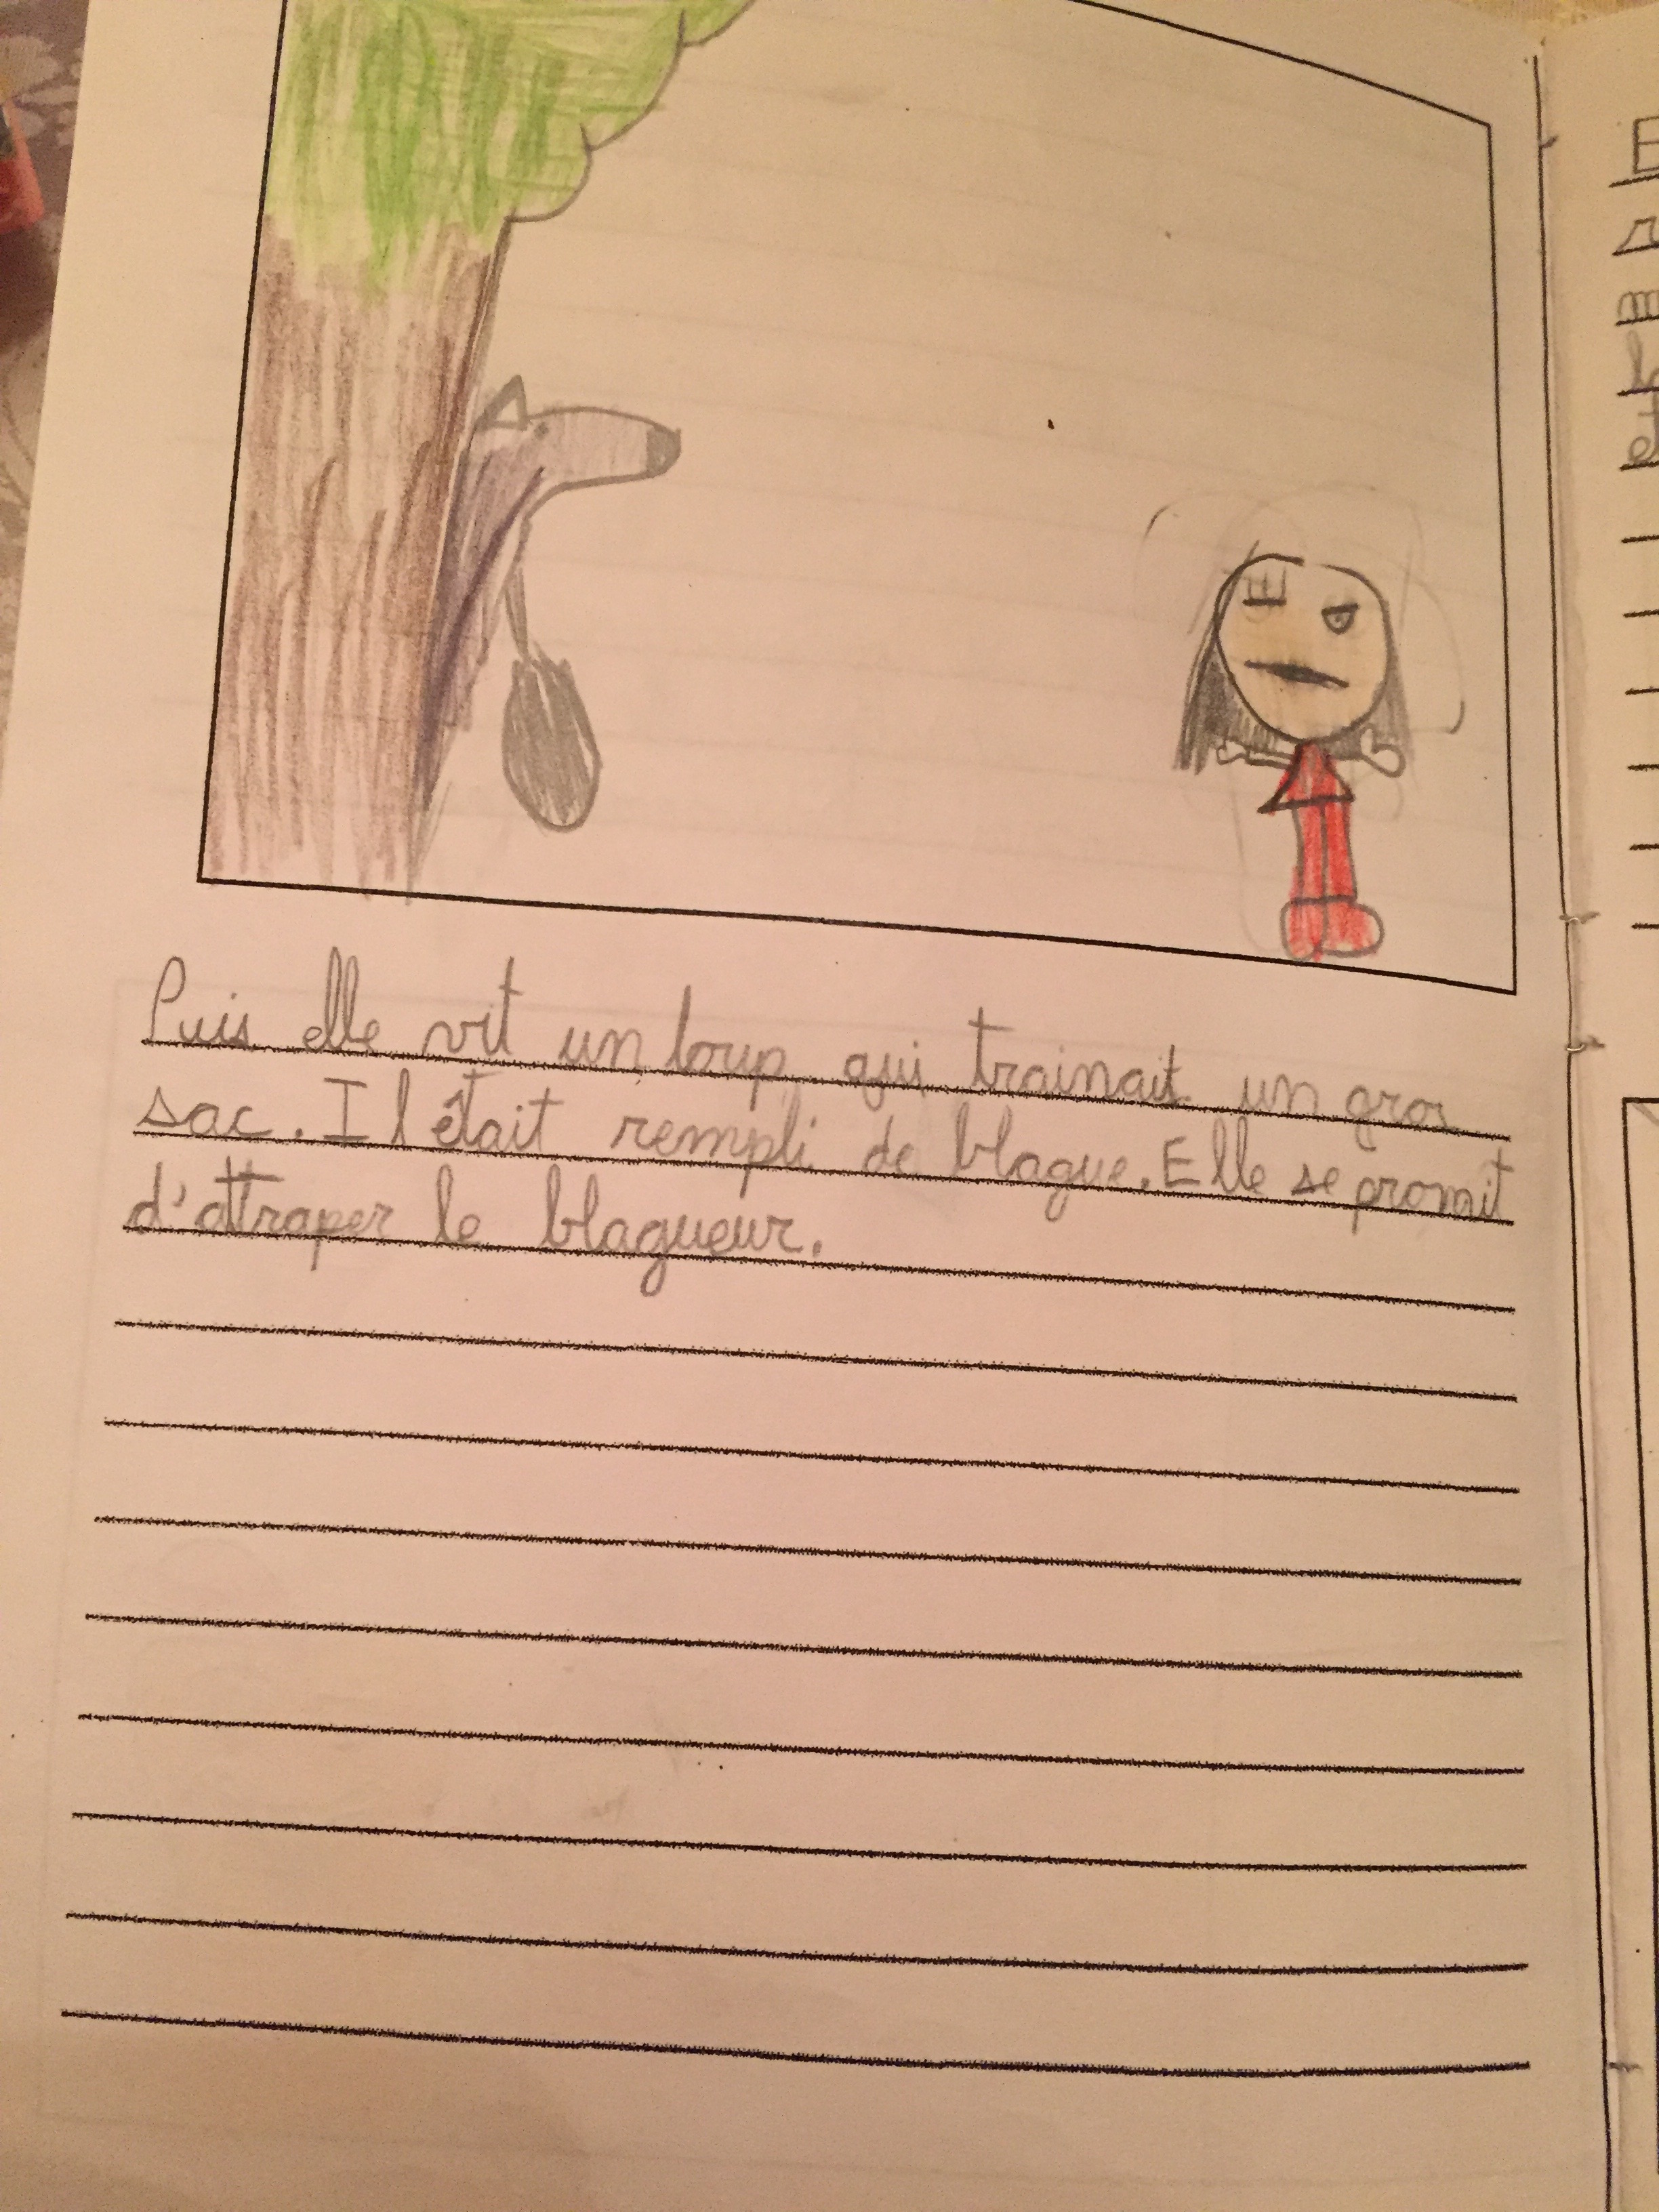 Puis elle vit un loup qui trainait un gros
sac. Il êtait rempli de blague. Elle se promit
d'attraper le blagueur.